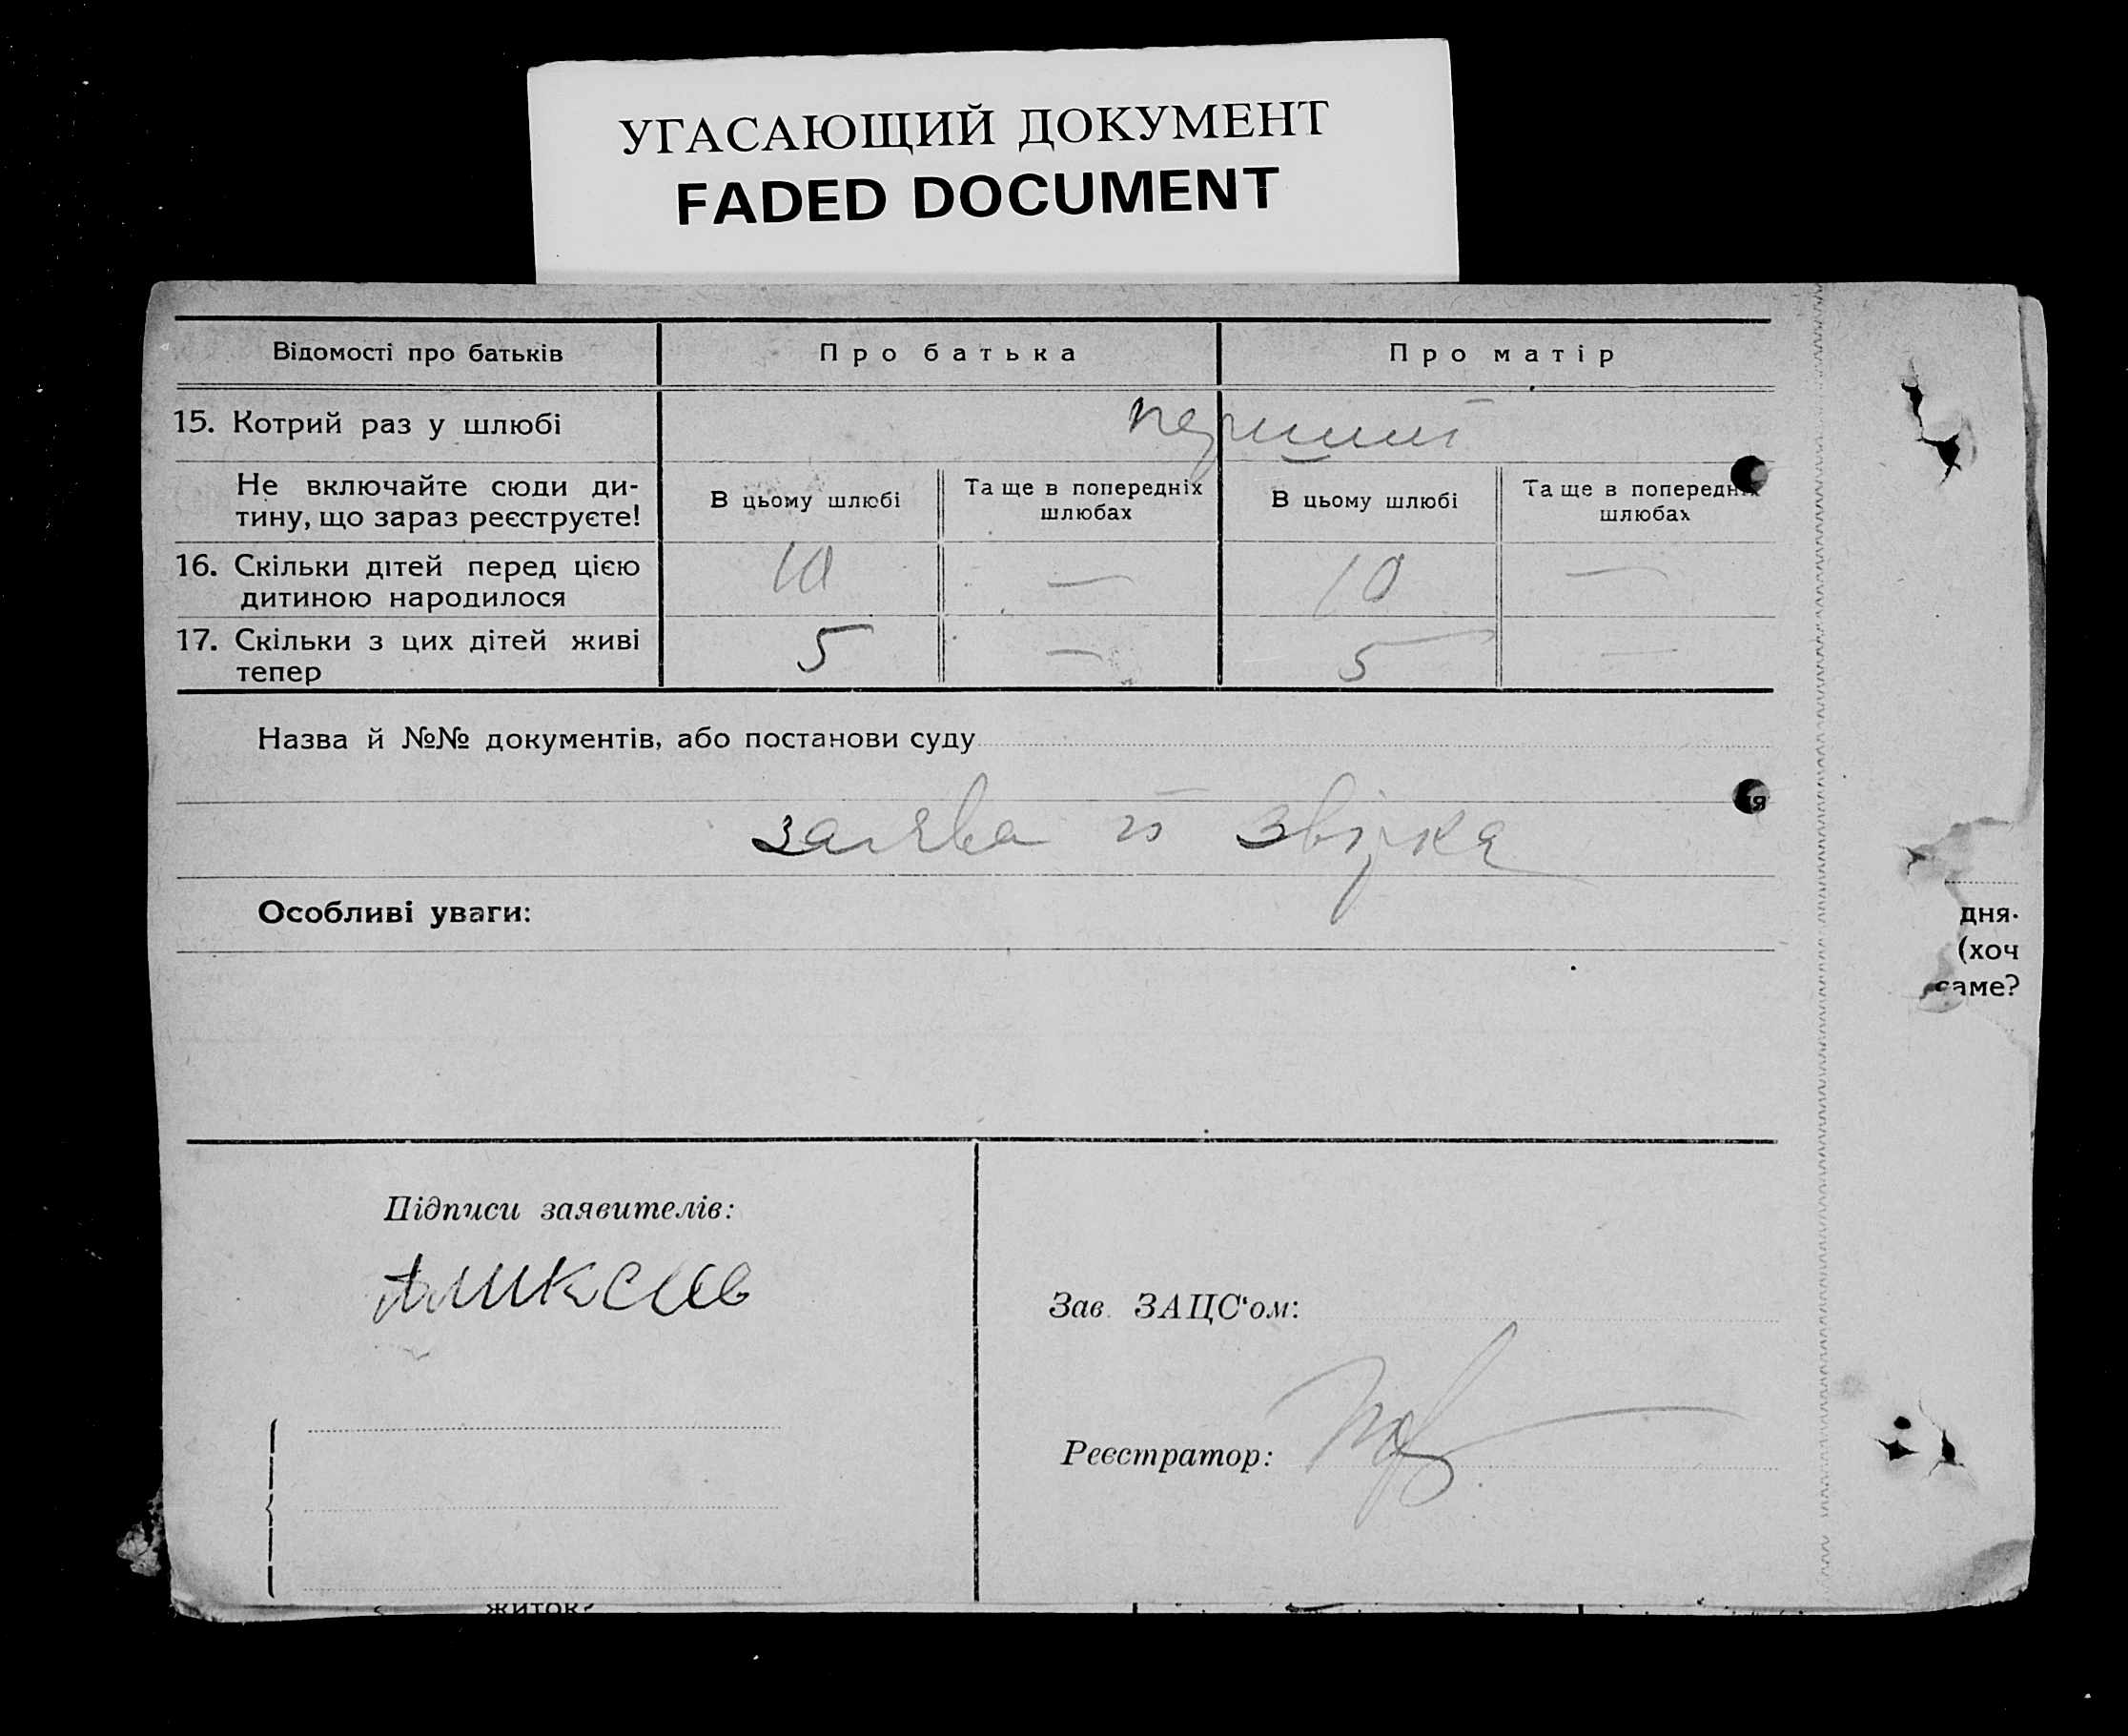 УГАСАЮЩИЙ ДОКУМЕНТ
FADED DOCUMENT
Відомості про батьків
Про батька
Про матір
15. Котрий раз у шлюбі
перший
Не включайте сюди ди-
тину, що зараз реєструєте!
В цьому шлюбі
Та ще в попередніх
шлюбах
В цьому шлюбі
Та ще в попередніх
шлюбах
16. Скільки дітей перед цією
дитиною народилося
10
—
10
—
17. Скільки з цих дітей живі
тепер
5
—
5
—
Назва й №№ документів, або постанови суду
заява й звірка
Особливі уваги:
дня·
(хоч
саме?
Підписи заявителів:
Зав. ЗАЦС‘ом:
Реєстратор:
житок?